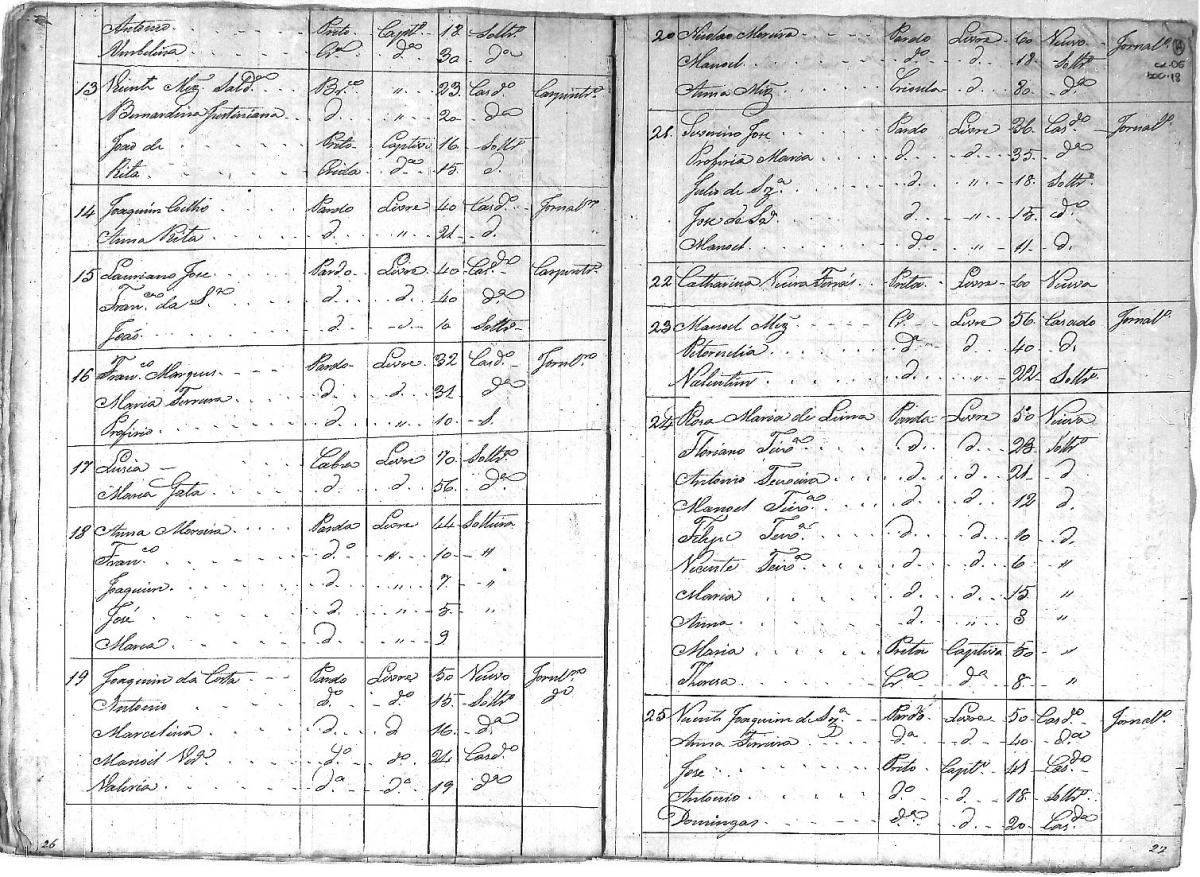 Antonio Preto Captº 18 Soltrº
Umbelina Crª dª 30 dª
13 Vicente Miz Saldº Brco " 23 Casdº Carpintrº
Bernardina Justiniana d. " 20 dª
João de Preto Captivo 16 Soltrº
Rita Prida dª 15 d.
14 Joaquim Coelho Pardo Livre 40 Casdº Jornalrº
Anna Rita d. " 21 d. "
15 Lauriano Jose Pardo Livre 40 Casdº Carpintrº
Francª da d. d. 40 dª
João d. d. 10 Soltrº
16 Francº Marques Pardo Livre 32 Casdº Jornlrº
Maria Ferreira d. d. 31 dª
Profirio d. " 10 S.
17 Lusia Cabra Livre 70 Soltrª
Maria Gata d. d. 56 dª
18 Anna Moreira Parda Livre 44 Solteira
Franco dº " 10 "
Joaquim d. " 7 "
José d. " 5 "
Maria d. " 9
19 Joaquim da Costa Pardo Livre 50 Viuvo Jornlrº
Antonio dº dº 15 Soltrº dº
Marcelina d d 16 dª
Manoel dº dº 24 Casdº
Valeria dª dª 19 dª
26
20 Moreira Pardo Livre 60 Viuvo Jornalº
Manoel dº d. 18 Soltrº
Anna Miz Crioula d. 80 dª
21 Severino Jose Pardo Livre 36 Casdº Jornalº
Profiria Maria d. d. 35 dª
Julio de Szª d. " 18 Soltrº
Jose de d. " 15 dº
Manoel dº " 11 d.
22 Catharina Vieira Preta Livre 60 Viuva
23 Manoel Miz Crº Livre 56 Casado Jornalº
Petornilia dª d 40 d.
Valentim d. " 22 Soltrº
24 Rosa Maria de Lima Parda Livre 50 Viuva
Floriano Teixrª d. d. 23 Soltrº
Antonio Teixeira d. d. 21 d
Manoel Teixrª d. d. 12 d.
Filipe Teixrª d. d. 10 d.
Vicente Teixrª d. d. 6 "
Maria d. d. 15 "
Anna d. " 8 "
Maria Preta Captiva 50 "
Theresa Crª dª 8 "
25 Vicente Joaquim de Szª Pardo Livre 50 Casdº Jornalº
Anna Ferreira dª d. 40 dª
Jose Preto Captº 41 Casdº
Antonio dº d. 18 Soltrº
Domingas dª d. 20 Casdª
27